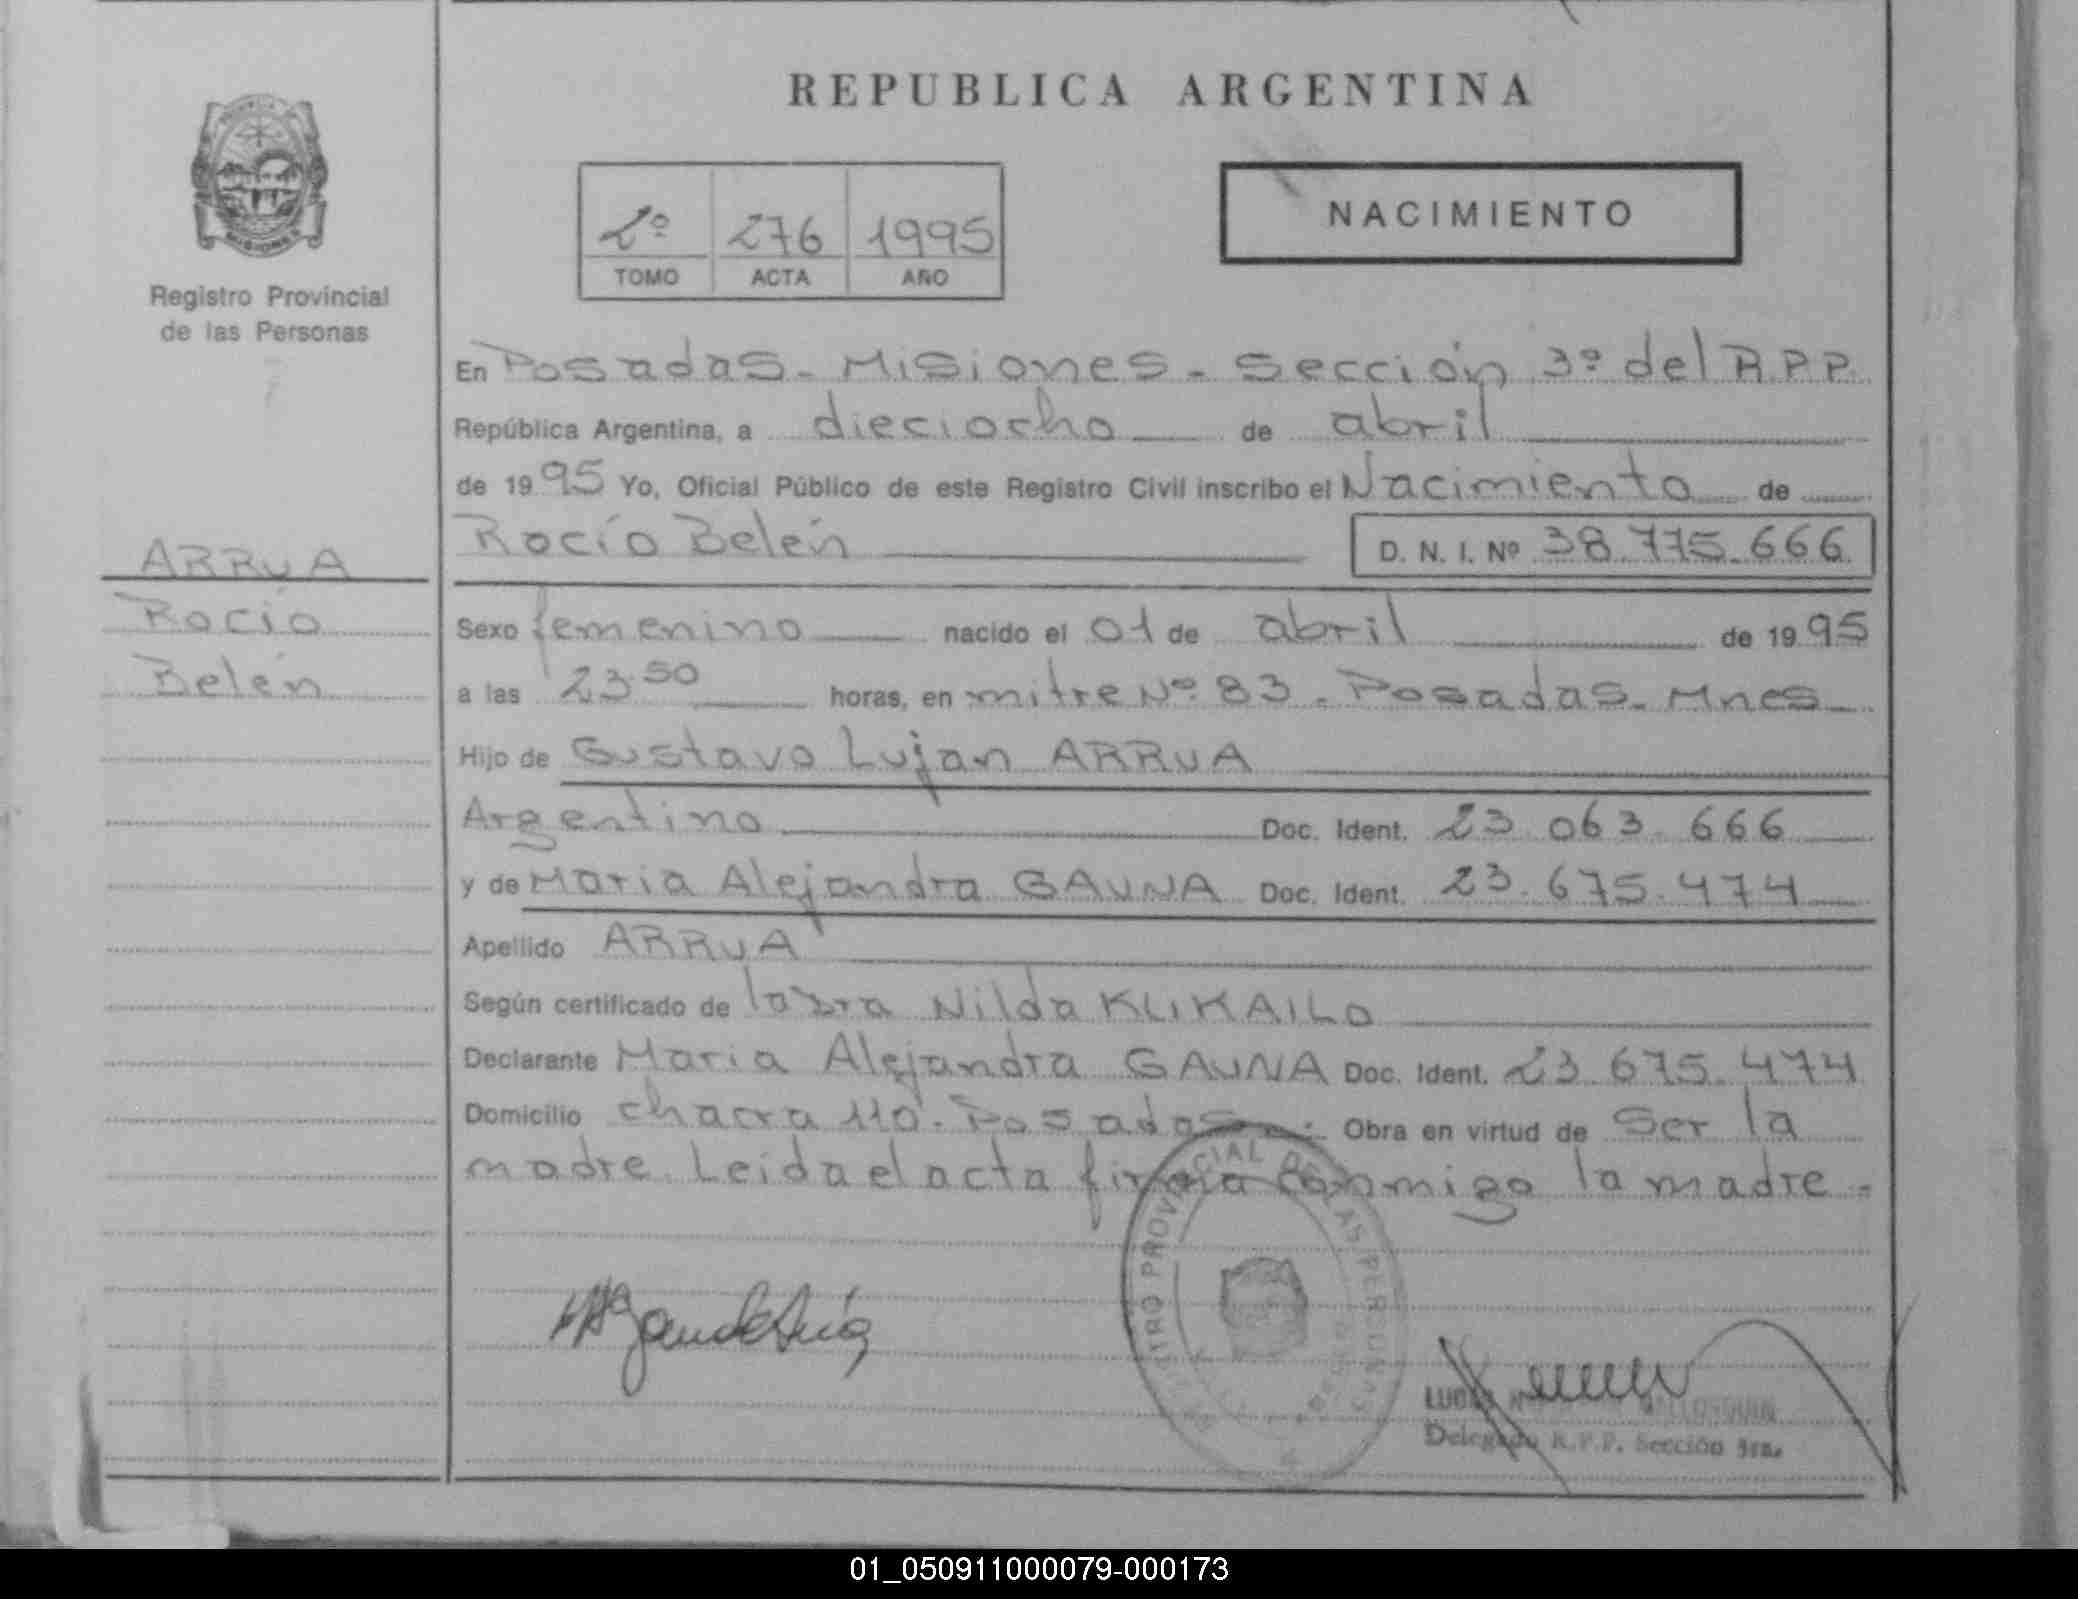 REPUBLICA ARGENTINA
NACIMIENTO
2º 276 1995
TOMO ACTA AÑO
MISIONES
Registro Provincial
de las Personas
ARRUA
Rocío
Belén
En Posadas - Misiones - Sección 3º del R.P.P.
República Argentina, a dieciocho de abril
de 1995 Yo, Oficial Público de este Registro Civil inscribo el Nacimiento de
Rocío Belén D. N. I. Nº 38.775.666
Sexo femenino nacido el 01 de abril de 1995
a las 23 50 horas, en mitre Nº 83 - Posadas - Mnes -
Hijo de Gustavo Lujan ARRUA
Argentino Doc. Ident. 23.063.666
y de Maria Alejandra GAUNA Doc. Ident. 23.675.474
Apellido ARRUA
Según certificado de la Dra Nilda KLIKAILO
Declarante Maria Alejandra GAUNA Doc. Ident. 23.675.474
Domicilio chacra 110 - Posadas - Obra en virtud de Ser la
madre. Leida el acta firma conmigo la madre -
PROVINCIAL DE LAS PERSONAS
Delegado R.P.P. Sección 3ra.
01_050911000079-000173